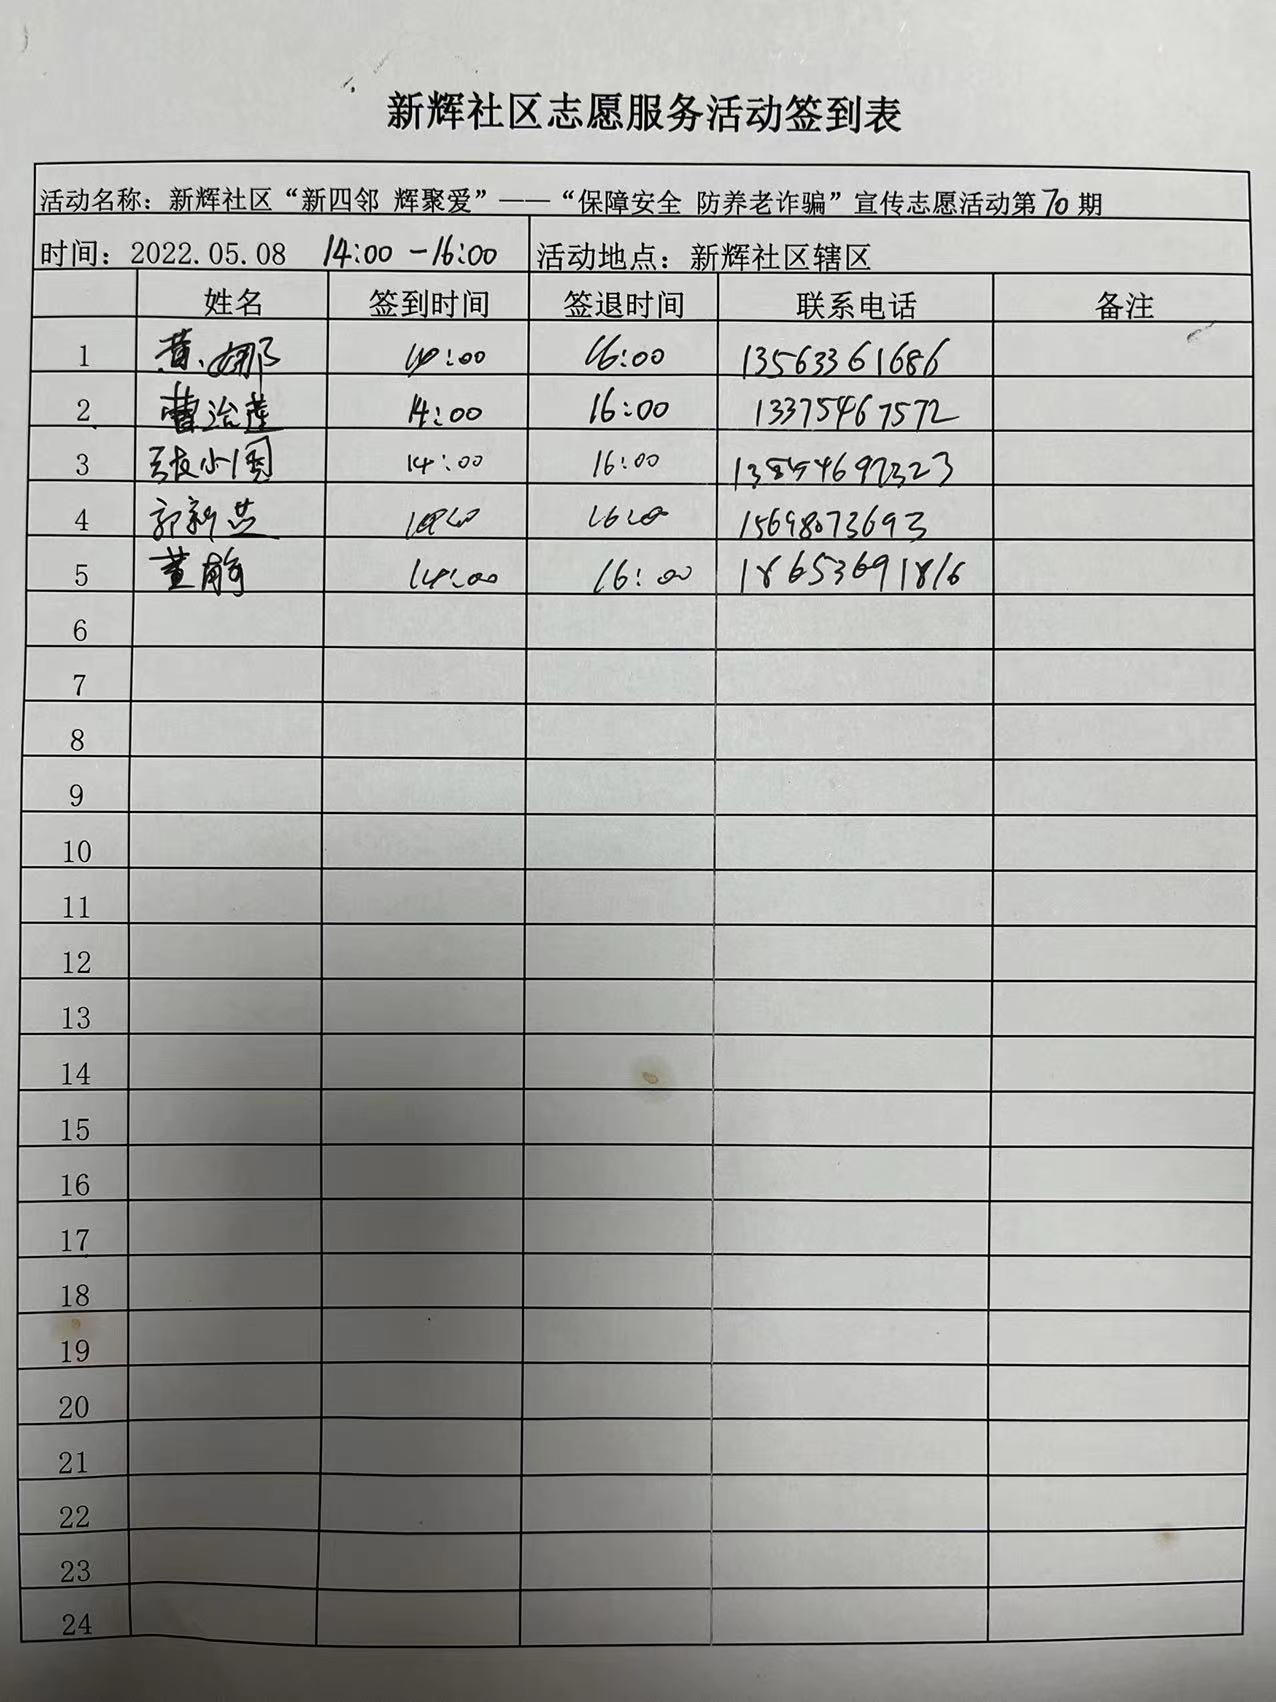 新辉社区志愿服务活动签到表
活动名称：新辉社区“新四邻 辉聚爱”——“保障安全 防养老诈骗”宣传志愿活动第70期
时间：2022.05.08 14:00-16:00 活动地点：新辉社区辖区
姓名 签到时间 签退时间 联系电话 备注
1 黄娜 14:00 16:00 13563361686
2 曹治莲 14:00 16:00 13375467572
3 小周 14:00 16:00
4 郭新 14:00 16:00 15698073693
5 董 14:00 16:00 18653691816
6
7
8
9
10
11
12
13
14
15
16
17
18
19
20
21
22
23
24